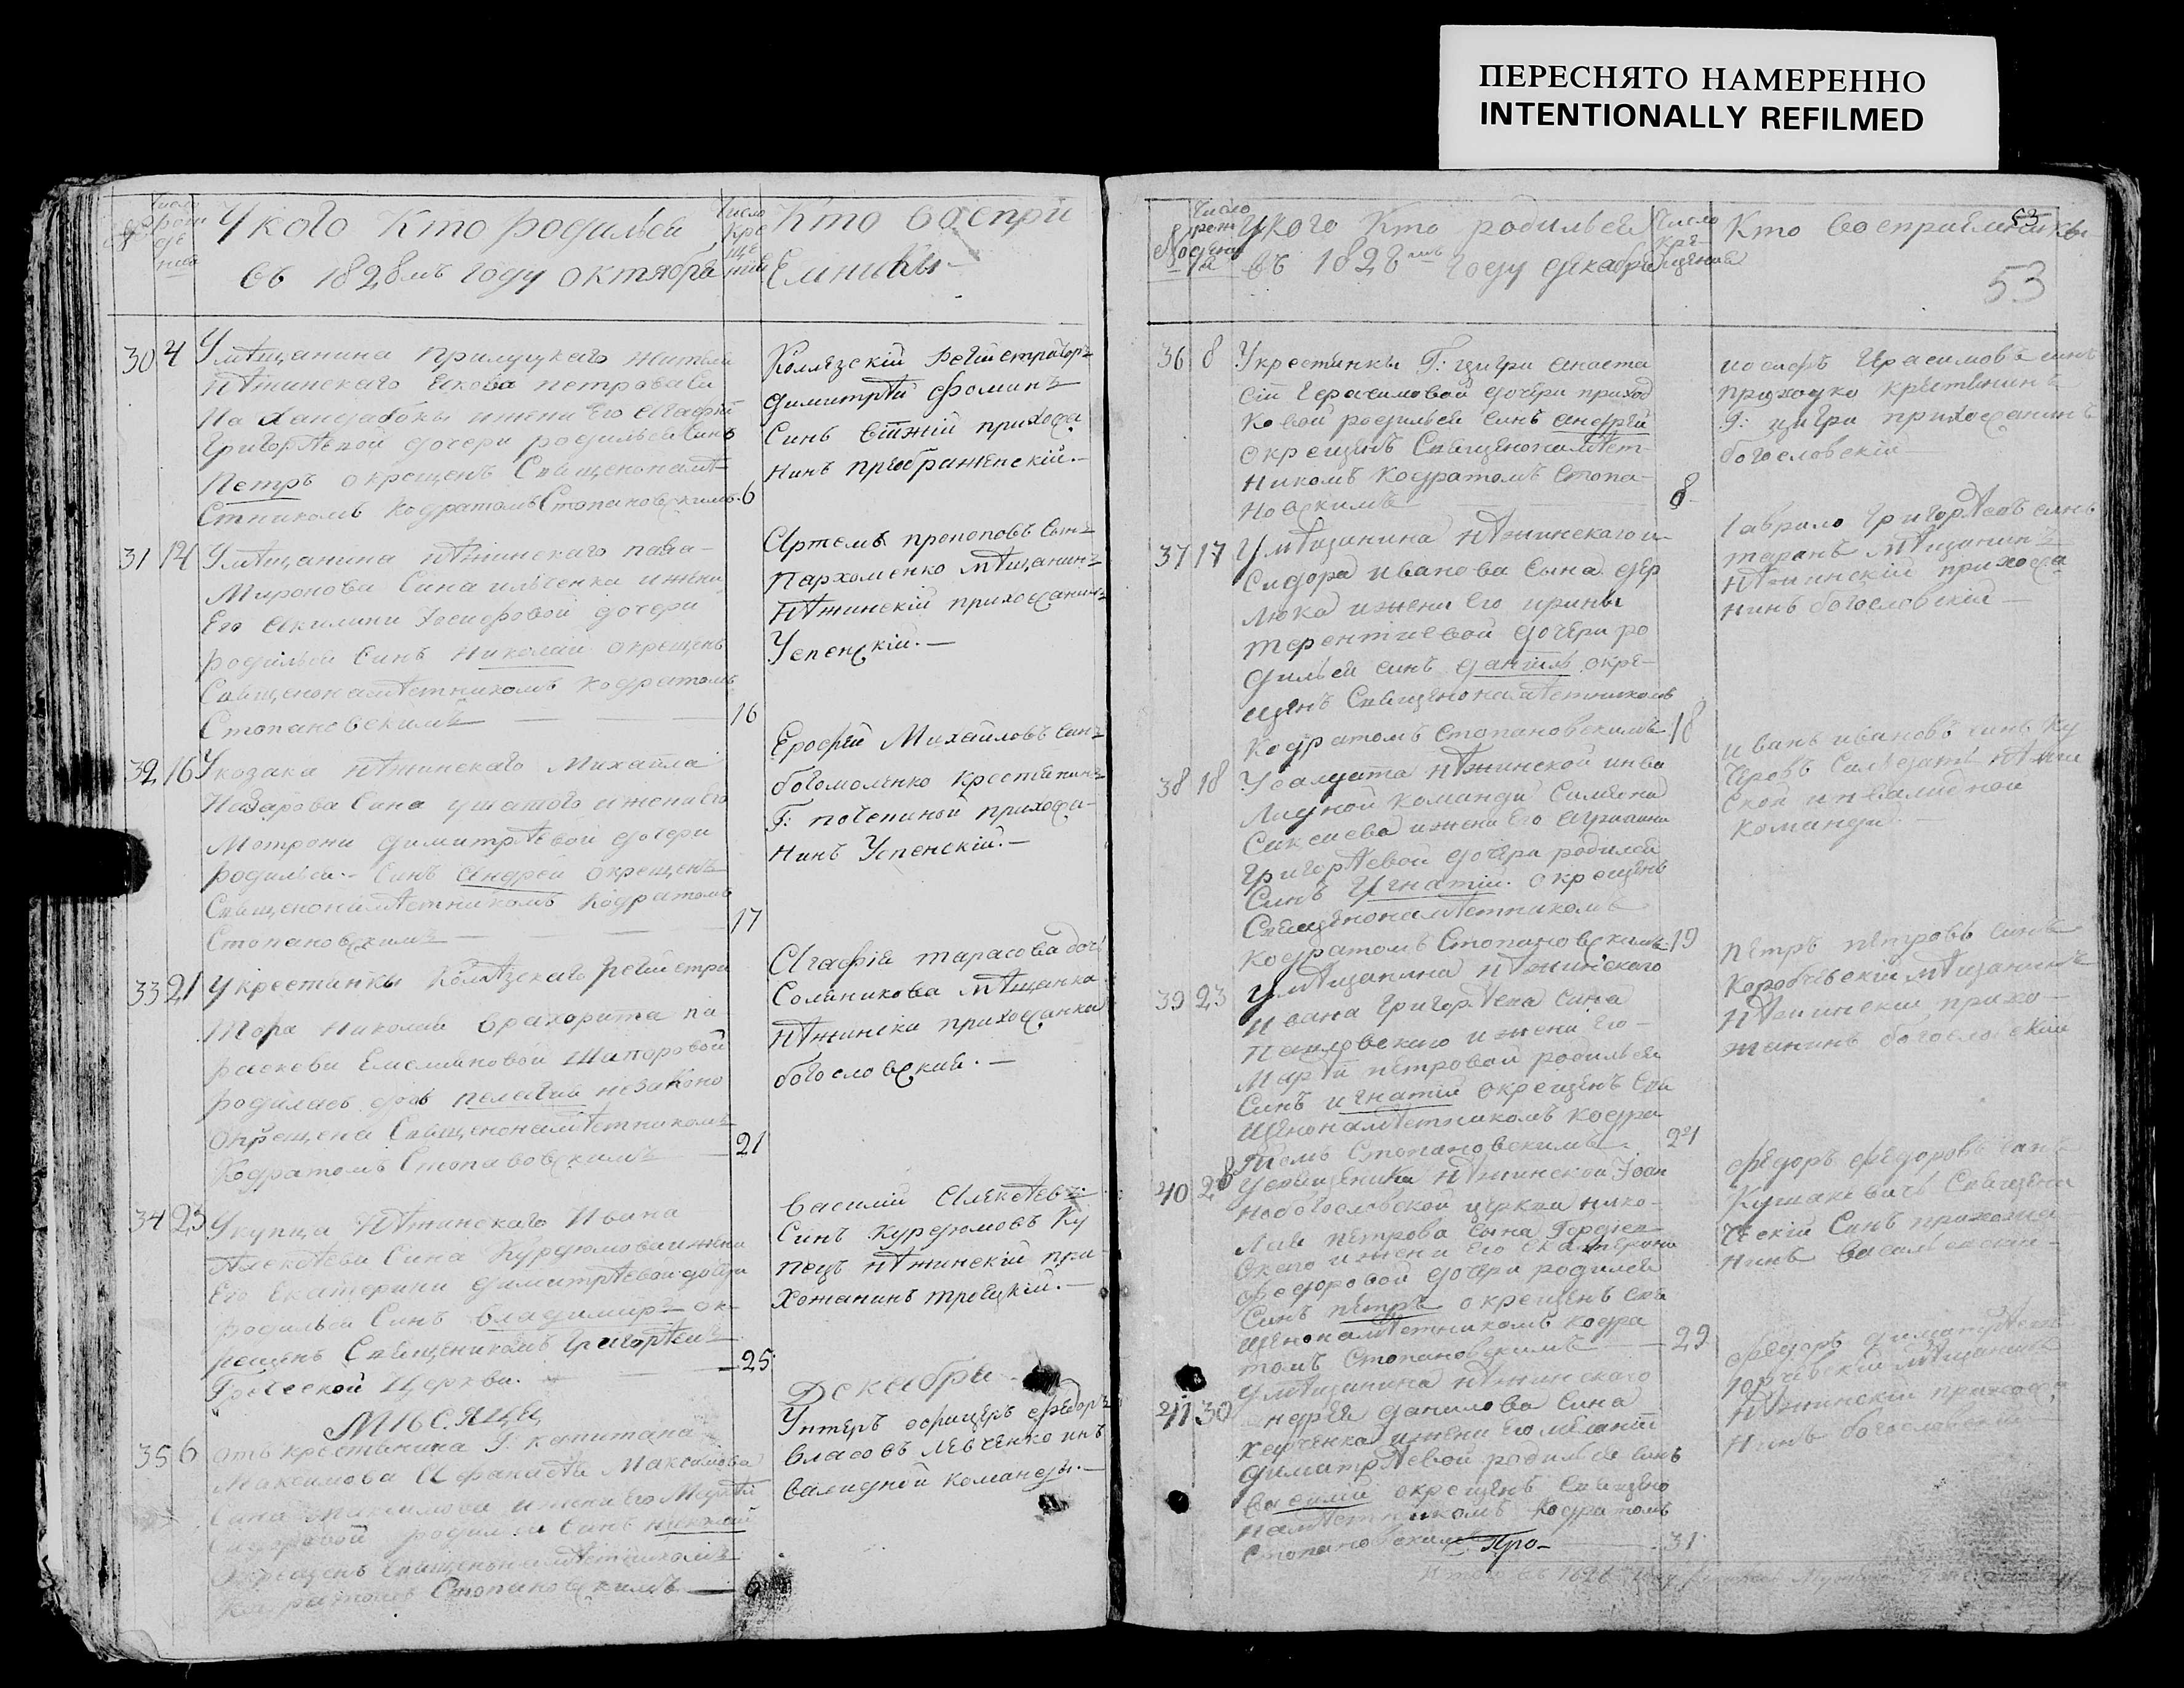 ПЕРЕСНЯТО НАМЕРЕННО
INTENTIONALLY REFILMED
№
Число рож де ния
У кого Кто родилься
въ 1828мъ Году октября
Число Кре ще ния
Кто воспри
Емники
30 4
Умѣщанина прилуцкаго жителя
нѣжинскаго Якова петрова
и жени Его Агафiи
Григорѣвой дочери родилься Синъ
Петръ окрещенъ Священонамѣ
Стникомъ КодратомъСтопановскимъ 6
Колѣзскiй Регiстраторъ
димитрѣй фоминъ
Синъ прихожа
нинъ преображенскiй.
31 14
Умѣщанина нѣжинскаго павла
Миронова Сина ильченка ижени
Его Акилини Iосифовой дочери
родилься Синъ Николай окрещенъ
Священонамѣстникомъ кодратомъ
Стопановскимъ 16
Артемъ прокоповъ Синъ
Пархоменко мѣщанинъ
нѣжинскiй прихожанинъ
Успенскiй.
32 16
Укозака нѣжинскаго Михайла
Назарова Сина ушатого ижени его
Мотрони димитрѣвой дочери
родилься Синъ Андрей окрещенъ
Священонамѣстникомъ Кодратомъ
Стопановскимъ 17
Ерофей Михайловъ синъ
богомоленко крестянинъ
Г: почепиной прихожа-
нинъ Успенскiй.
33 21
Укрестянки Колѣзскаго регiстра
тора николая врахорита па
раскеви Емелияновой Шапоровой
родилась дочъ пелагия незаконо
окрещена Священонамѣстникомъ
Кодратомъ Стопановскимъ 21
Агафiя тарасова дочъ
Соляникова мѣщанка
нѣжинска прихожанка
богословский.
34 25
Укупца Нѣжинскаго Ивана
Алексѣева Сина Курдюмова ижени
Его Екатерини димитрѣвой дочери
родилься Синъ Владимиръ ок
рещенъ Священикомъ Григорѣмъ
Греческой Церкви. 25
Василий Алексѣевъ
Синъ Курдюмовъ Ку
пецъ нѣжинскiй при
хожанинъ троецкiй.
МѢСЯЦЫ
Декабря
35 6
отъ крестянина Г: капитана
Максимова Афанасѣя Максимова
Сина ижени Его
родилься Синъ николай
окрещенъ Священонамѣстникомъ
Кодратомъ Стопановскимъ 6
Унтеръ офицеръ федоръ
власовъ левченко инъ
валидной команды.
№
Число рож дени я
Укого Кто родилься
въ 1828мъ Году декабря
Число Кре щения
Кто восприемники
53
53
36 8
Укрестянки Г: цигри анаста
сiи Герасимовой дочери приход
ковой родилься синъ андрей
окрещенъ Священонамѣст-
никомъ Кодратомъ Стопа-
новскимъ 8
иосифъ Герасимовъ синъ
приходко крестянинъ
Г: цигри прихожанинъ
богословскiй
37 17
Умѣщанина нѣжинскаго
Сидора иванова Сына дер
люка ижени Его ирины
терентиевой дочери ро
дилься синъ данiилъ окре-
щенъ Священонамѣстникомъ
Кодратомъ Стопановскимъ 18
Гаврило Григорѣевъ синъ
таранъ мѣщанинъ
нѣжинскiй прихожа
нинъ богословскiй
38 18
Усалдата нѣжинской инва
лидной команди
ижени Его
Григорѣевой дочери родилься
Синъ Игнатiй окрещенъ
Священонамѣстникомъ
Кодратомъ Стопановскимъ 19
иванъ ивановъ синъ Ку
черовъ Салъдатъ нѣжин
ской инвалидной
команди
39 23
Умѣщанина нѣжинскаго
Ивана Григорѣева Сина
Павловскаго ижени Его
Марiи петровой родилься
Синъ игнатiй окрещенъ Свя
щенонамѣстникомъ кодра
томъ Стопановскимъ 24
петръ петровъ синъ
Коробчевскiй мѣщанинъ
нѣжинскiй прихо-
жанинъ богословскiй
40 28
Усвященика нѣжинской Iоан
нобогословской церкви нико-
лая петрова Сына Гордиев
скаго ижени Его Екатерини
федоровой дочери родилься
Синъ петръ окрещенъ свя
щенонамѣстникомъ кодра
томъ Стопановскимъ 29
федоръ федоровъ син
Кушакевичъ Священи
ческiй Синъ прихожа-
нинъ
41 30
Умѣщанина нѣжинскаго
андрея данилова Сина
ижени Его меланiи
димитрѣвой родилься синъ
василий окрещенъ Священо
намѣстникомъ Кодратомъ
Стопановскимъ 31
Про
федоръ димитрѣевъ
мѣщанинъ
нѣжинскiй прихожа
нинъ богословскiй